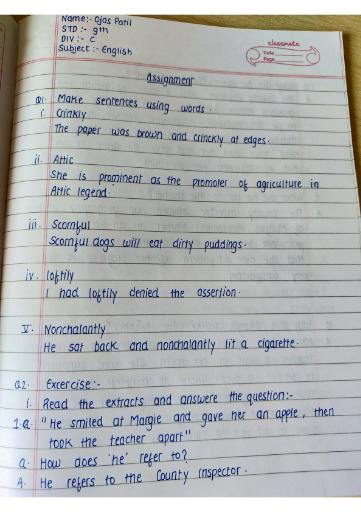 Name:- Ojas Patil
STD :- 9th
DIV :- C
Subject :- English
classmate
Date
Page
Assignment
Q1. Make sentences using words.
i. Crinkly
The paper was brown and crinckly at edges.
ii. Attic
She is prominent as the promoter of agriculture in
Attic legend.
iii. Scornful
Scornful dogs will eat dirty puddings.
iv. loftily
I had loftily denied the assertion.
V. Nonchalantly
He sat back and nonchalantly lit a cigarette.
Q2. Excercise:-
1. Read the extracts and answere the question:-
1.Q. "He smiled at Margie and gave her an apple, then
took the teacher apart"
Q. How does 'he' refer to?
A. He refers to the County Inspector.